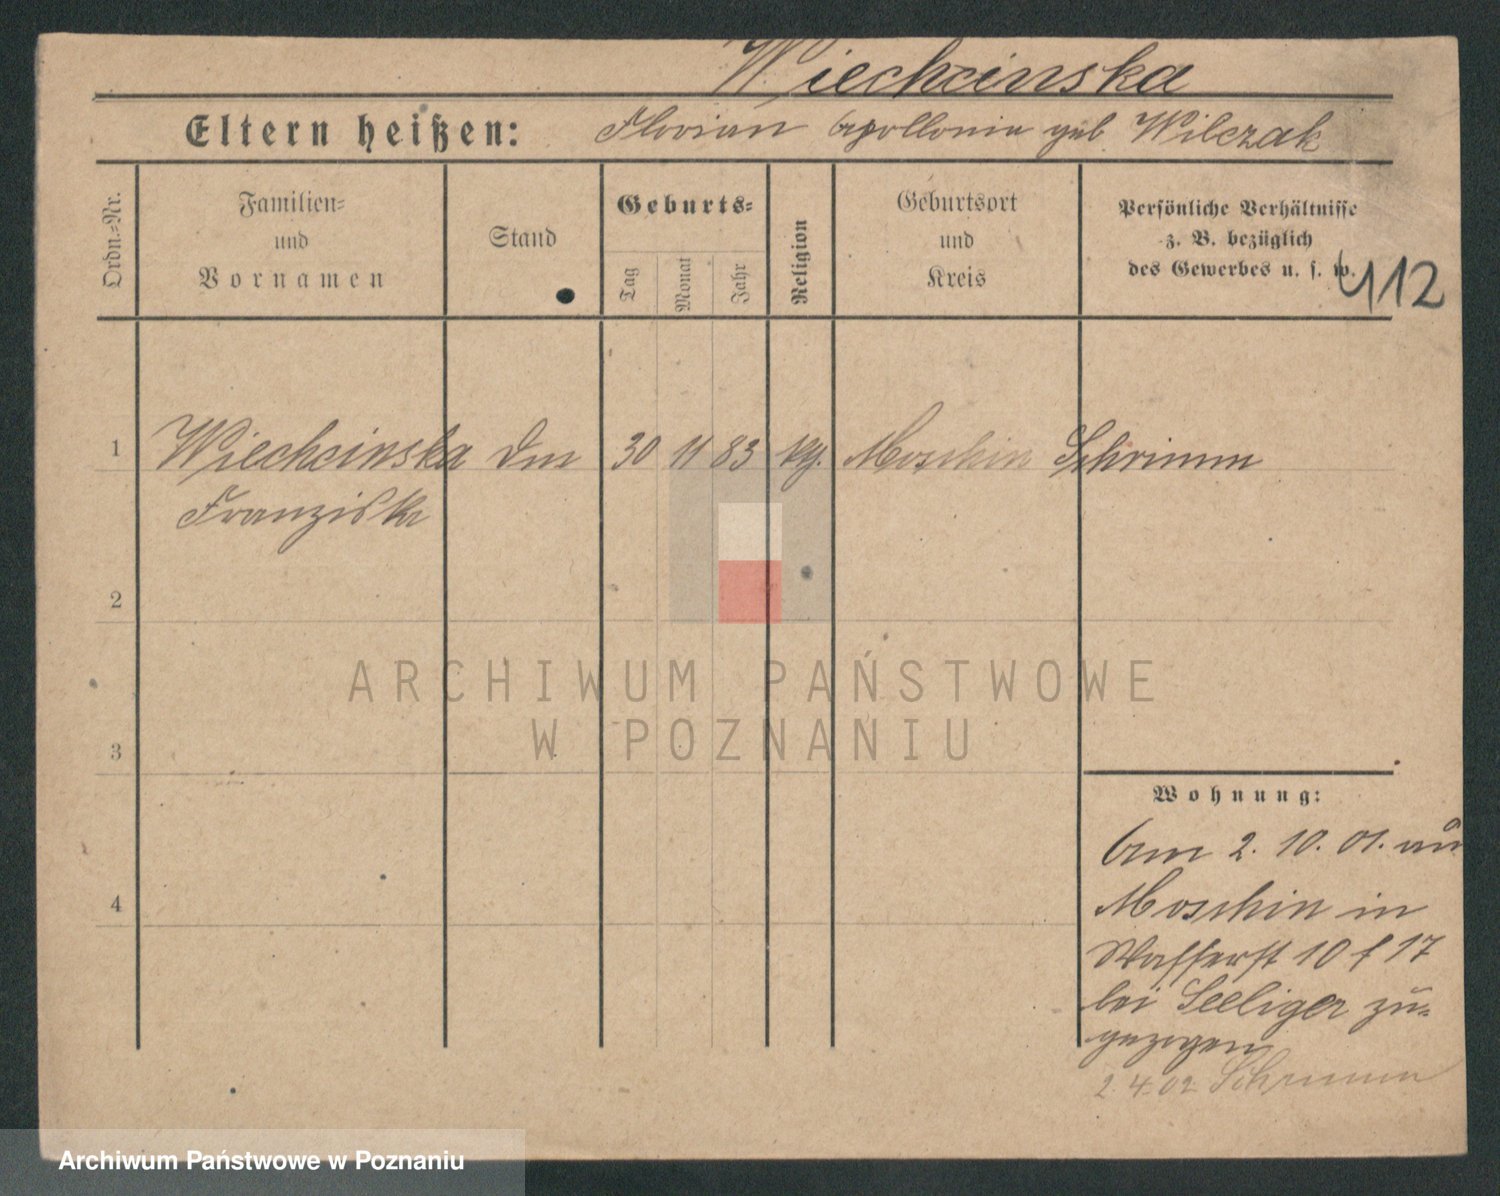 Wiechcinska
Eltern heißen: Florian Apollonia geb. Wilczak
Ordn.-Nr.
Familien-
und
Vornamen
Stand
Geburts-
Tag
Monat
Jahr
Religion
Geburtsort
und
Kreis
Persönliche Verhältnisse
z. B. bezüglich
des Gewerbes u. s. w.
412
1 Wiechcinska 30 11 83 kg. Moschin Schrimm
Franziska
2
3
4
Wohnung:
Am 2. 10. 01. aus
Moschin in
Wasserst 10 f 17
bei Seeliger zu-
gezogen
2. 4. 02 Schrimm
ARCHIWUM PAŃSTWOWE
W POZNANIU
Archiwum Państwowe w Poznaniu